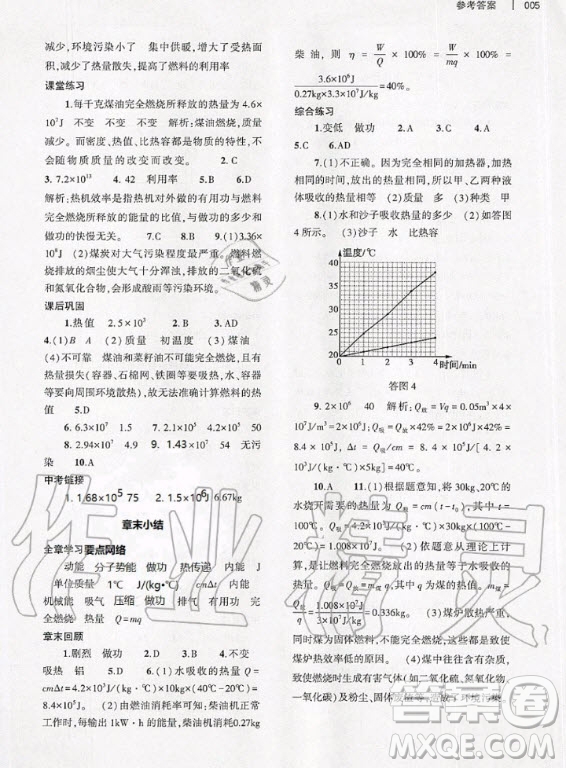 参考答案 005
减少，环境污染小了 集中供暖，增大了受热面
积，减少了热量散失，提高了燃料的利用率
课堂练习
1.每千克煤油完全燃烧所释放的热量为4.6×
10⁷J 不变 不变 不变 解析：煤油燃烧，质量
减少。而密度、热值、比热容都是物质的特性，不
会随物质质量的改变而改变。 2.C
3.7.2×10¹³ 4.42 利用率 5.B 6.D
解析：热机效率是热机对外做的有用功与燃料
完全燃烧所释放的能量的比值，与做功的多少和
做功的快慢无关。 7.C 8.B 9.(1)3.36×
10⁵kg (2)煤炭对大气污染程度最严重。燃料燃
烧排放的烟尘使大气十分浑浊，排放的二氧化硫
和氮氧化合物，会形成酸雨等污染环境。
课后巩固
1.热值 2.5×10³ 2.B 3.AD
4.(1)B A (2)质量 初温度 (3)煤油
(4)不可靠 煤油和菜籽油不可能完全燃烧，且有
热量损失(容器、石棉网、铁圈等要吸热，还有热量
要向周围环境散热)，故无法准确计算燃料的热
值 5.D
6.6.3×10⁷ 1.5×10⁶ 7.2.1×10⁵ 50
8.2.94×10⁷ 4.2×10⁶ 9.1.43×10⁷ 无污
染 10.A
中考链接
1.1.68×10⁵ 75 2.1.5×10⁶J 6.67kg
章末小结
全章学习要点网络
动能 分子势能 做功 热传递 内能 J
单位质量 1℃ J/(kg·℃) cmΔt 内能
机械能 吸气 压缩 做功 1kg 完全
燃烧 热量 Q=mq
章末回顾
1.剧烈 做功 2.C 3.A 4.C 不变
吸热 铝 5.D 6.(1)水吸收的热量Q=
cmΔt=4.2×10³J/(kg·℃)×10kg×(40℃−20℃)=
8.4×10⁵J。 (2)由燃油消耗率可知，柴油机正常
工作时，每输出1kW·h的能量，柴油机消耗0.27kg
柴油，则η=W/Q×100%=W/mq×100%=
3.6×10⁶J/0.27kg×3.3×10⁷J/kg=40%。
综合练习
1.变低 做功 2.A 3.C 4.A
5.C 6.AD
7.(1)不正确。因为完全相同的加热器，加热
相同的时间，放出的热量相同，所以甲、乙两种液
体吸收的热量相同。 (2)质量 多 (3)种类 甲
8.(1)水和沙子吸收热量的多少 (2)如答图
4所示。 (3)沙子 水 比热容
温度/℃
40
36
32
28
24
20
0 1 2 3 4 时间/min
答图4
9.2×10⁶ 40 解析：Q放=Vq=0.05m³×4
×10⁷J/m³=2×10⁶J。Q吸=Q放×42%=2×10⁶J×42%=
8.4×10⁵J，Δt=Q吸/cm=8.4×10⁵J/[4.2×10³J/
(kg·℃)×5kg]=40℃。
10.A 11.(1)根据题意知，将30kg、20℃的
水烧开需要的热量为Q吸=cm(t−t₀)，代入数据解
得：Q吸=4.2×10³J/(kg·℃)×30kg×(100℃−20℃)=
1.008×10⁷J。 (2)依题意从理论上计
算，是指燃料完全燃烧放出的热量等于水吸收的
热量。根据燃烧值的意义，Q放=mq，其中q为煤的热值。m=
Q吸/q=1.008×10⁷J/3×10⁷J/kg=0.336kg。 (3)煤炉散热严重，
同时煤为固体燃料，不能完全燃烧，这些因素使得
煤炉热效率低。 (4)煤中含有杂质，且不
能充分燃烧，容易生成有害气体(如二氧化硫、氮氧化物、
一氧化碳)及粉尘、固体
作业精灵
答案圈
MXQE.COM